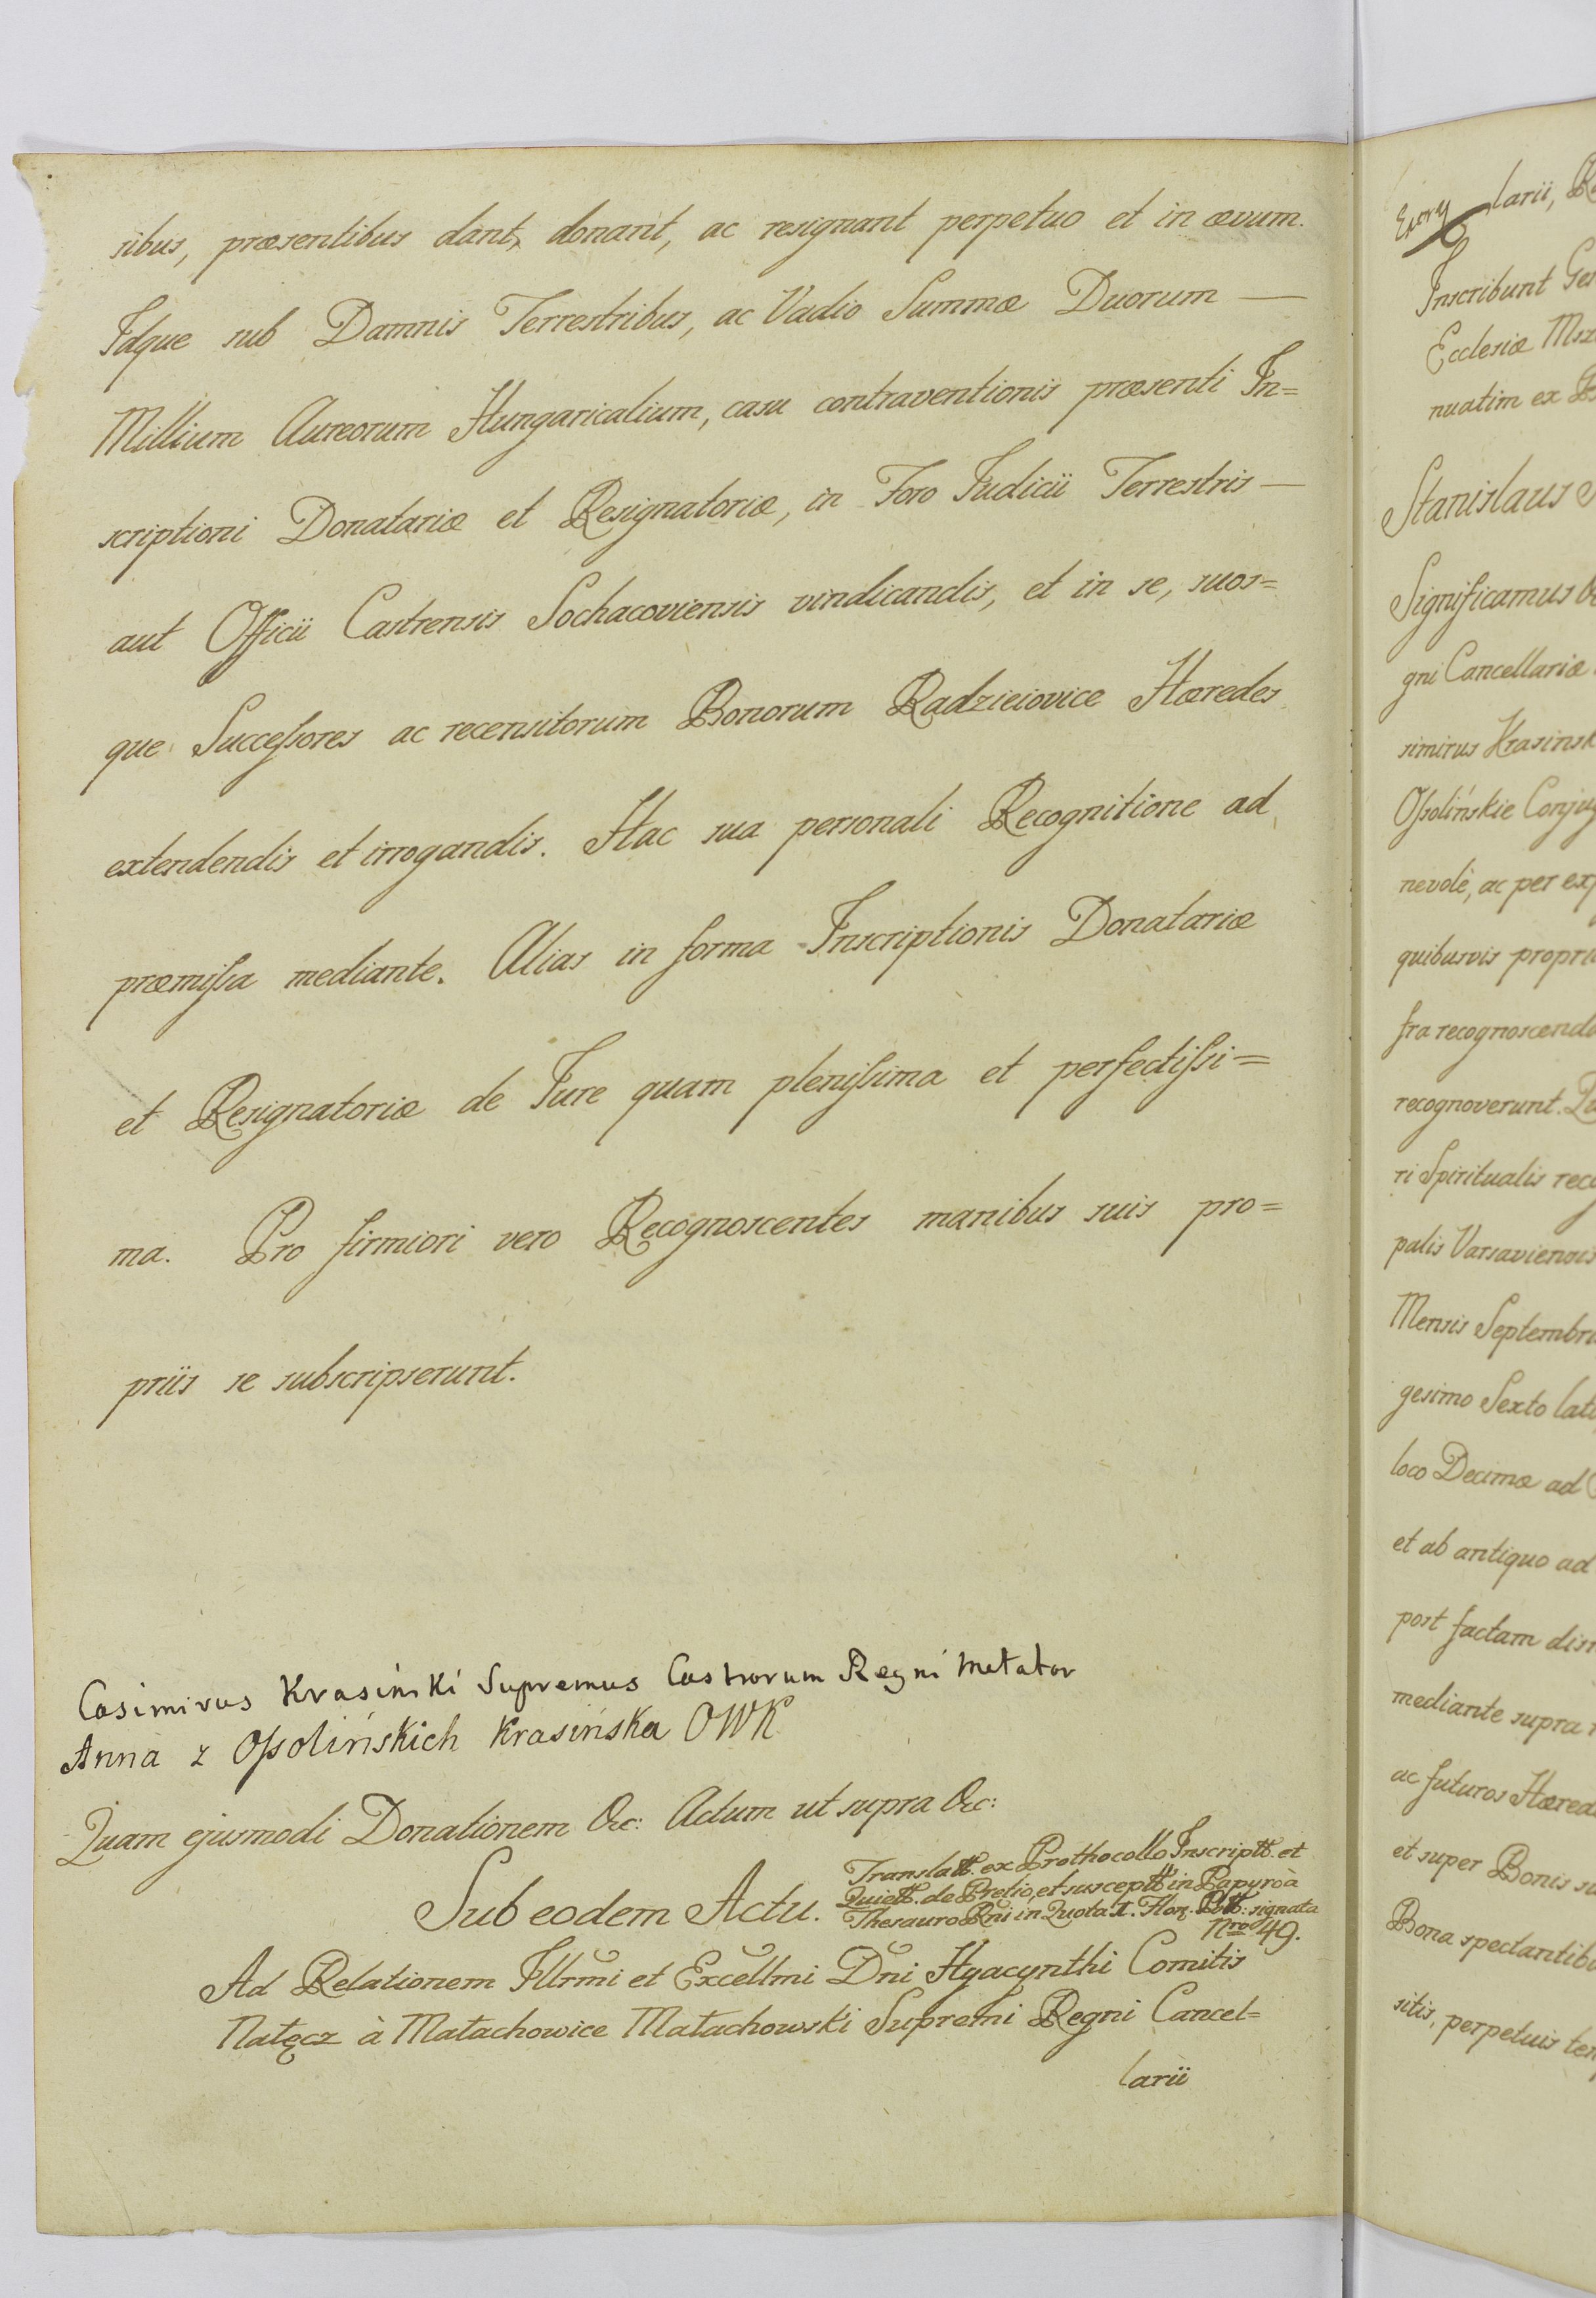 sibus, præsentibus dant, donant, ac resignant perpetuo et in ævum.
Idque sub Damnis Terrestribus, ac Vadio Summæ Duorum —
Millium Aureorum Hungaricalium, casu contraventionis præsenti In=
scriptioni Donatariæ et Resignatoriæ, in Foro Iudicii Terrestris —
aut Officii Castrensis Sochacoviensis vindicandis, et in se, suos=
que Successores ac recensitorum Bonorum Radzieiovice Hæredes
extendendis et irrogandis. Hac sua personali Recognitione ad
præmissa mediante. Alias in forma Inscriptionis Donatariæ
et Resignatoriæ de Iure quam plenissima et perfectissi=
ma. Pro firmiori vero Recognoscentes manibus suis pro=
priis se subscripserunt.
Casimirus Krasiński Supremus Castrorum Regni Metator
Anna z Ossolińskich Krasińska OWK
Quam ejusmodi Donationem &c: Actum ut supra &c:
Translatt. ex Prothocollo Inscriptt. et
Quiett. de Pretio, et susceptt in Papyro à
Thesauro Rni in Quota I. Flor. Pltt: signata
Nro 49.
Sub eodem Actu.
Ad Relationem Illrmi et Excellmi Dni Hyacynthi Comitis
Nałęcz à Małachowice Małachowski Supremi Regni Cancel=
larii
larii,
Inscribunt
Ecclesiæ
nuatim ex
Stanislaus
Significamus
gni Cancellariæ
simirus Krasinsk
Ossolińskie Conjug
nevolè, ac per exp
quibusvis propri
fra recognoscend
recognoverunt.
ri Spiritualis rec
palis Varsaviensis
Mensis Septembr
gesimo Sexto lat
loco Decimæ ad
et ab antiquo ad
post factam dis
mediante supra
ac futuros Hæred
et super Bonis su
Bona spectantib
sitis, perpetuis tem